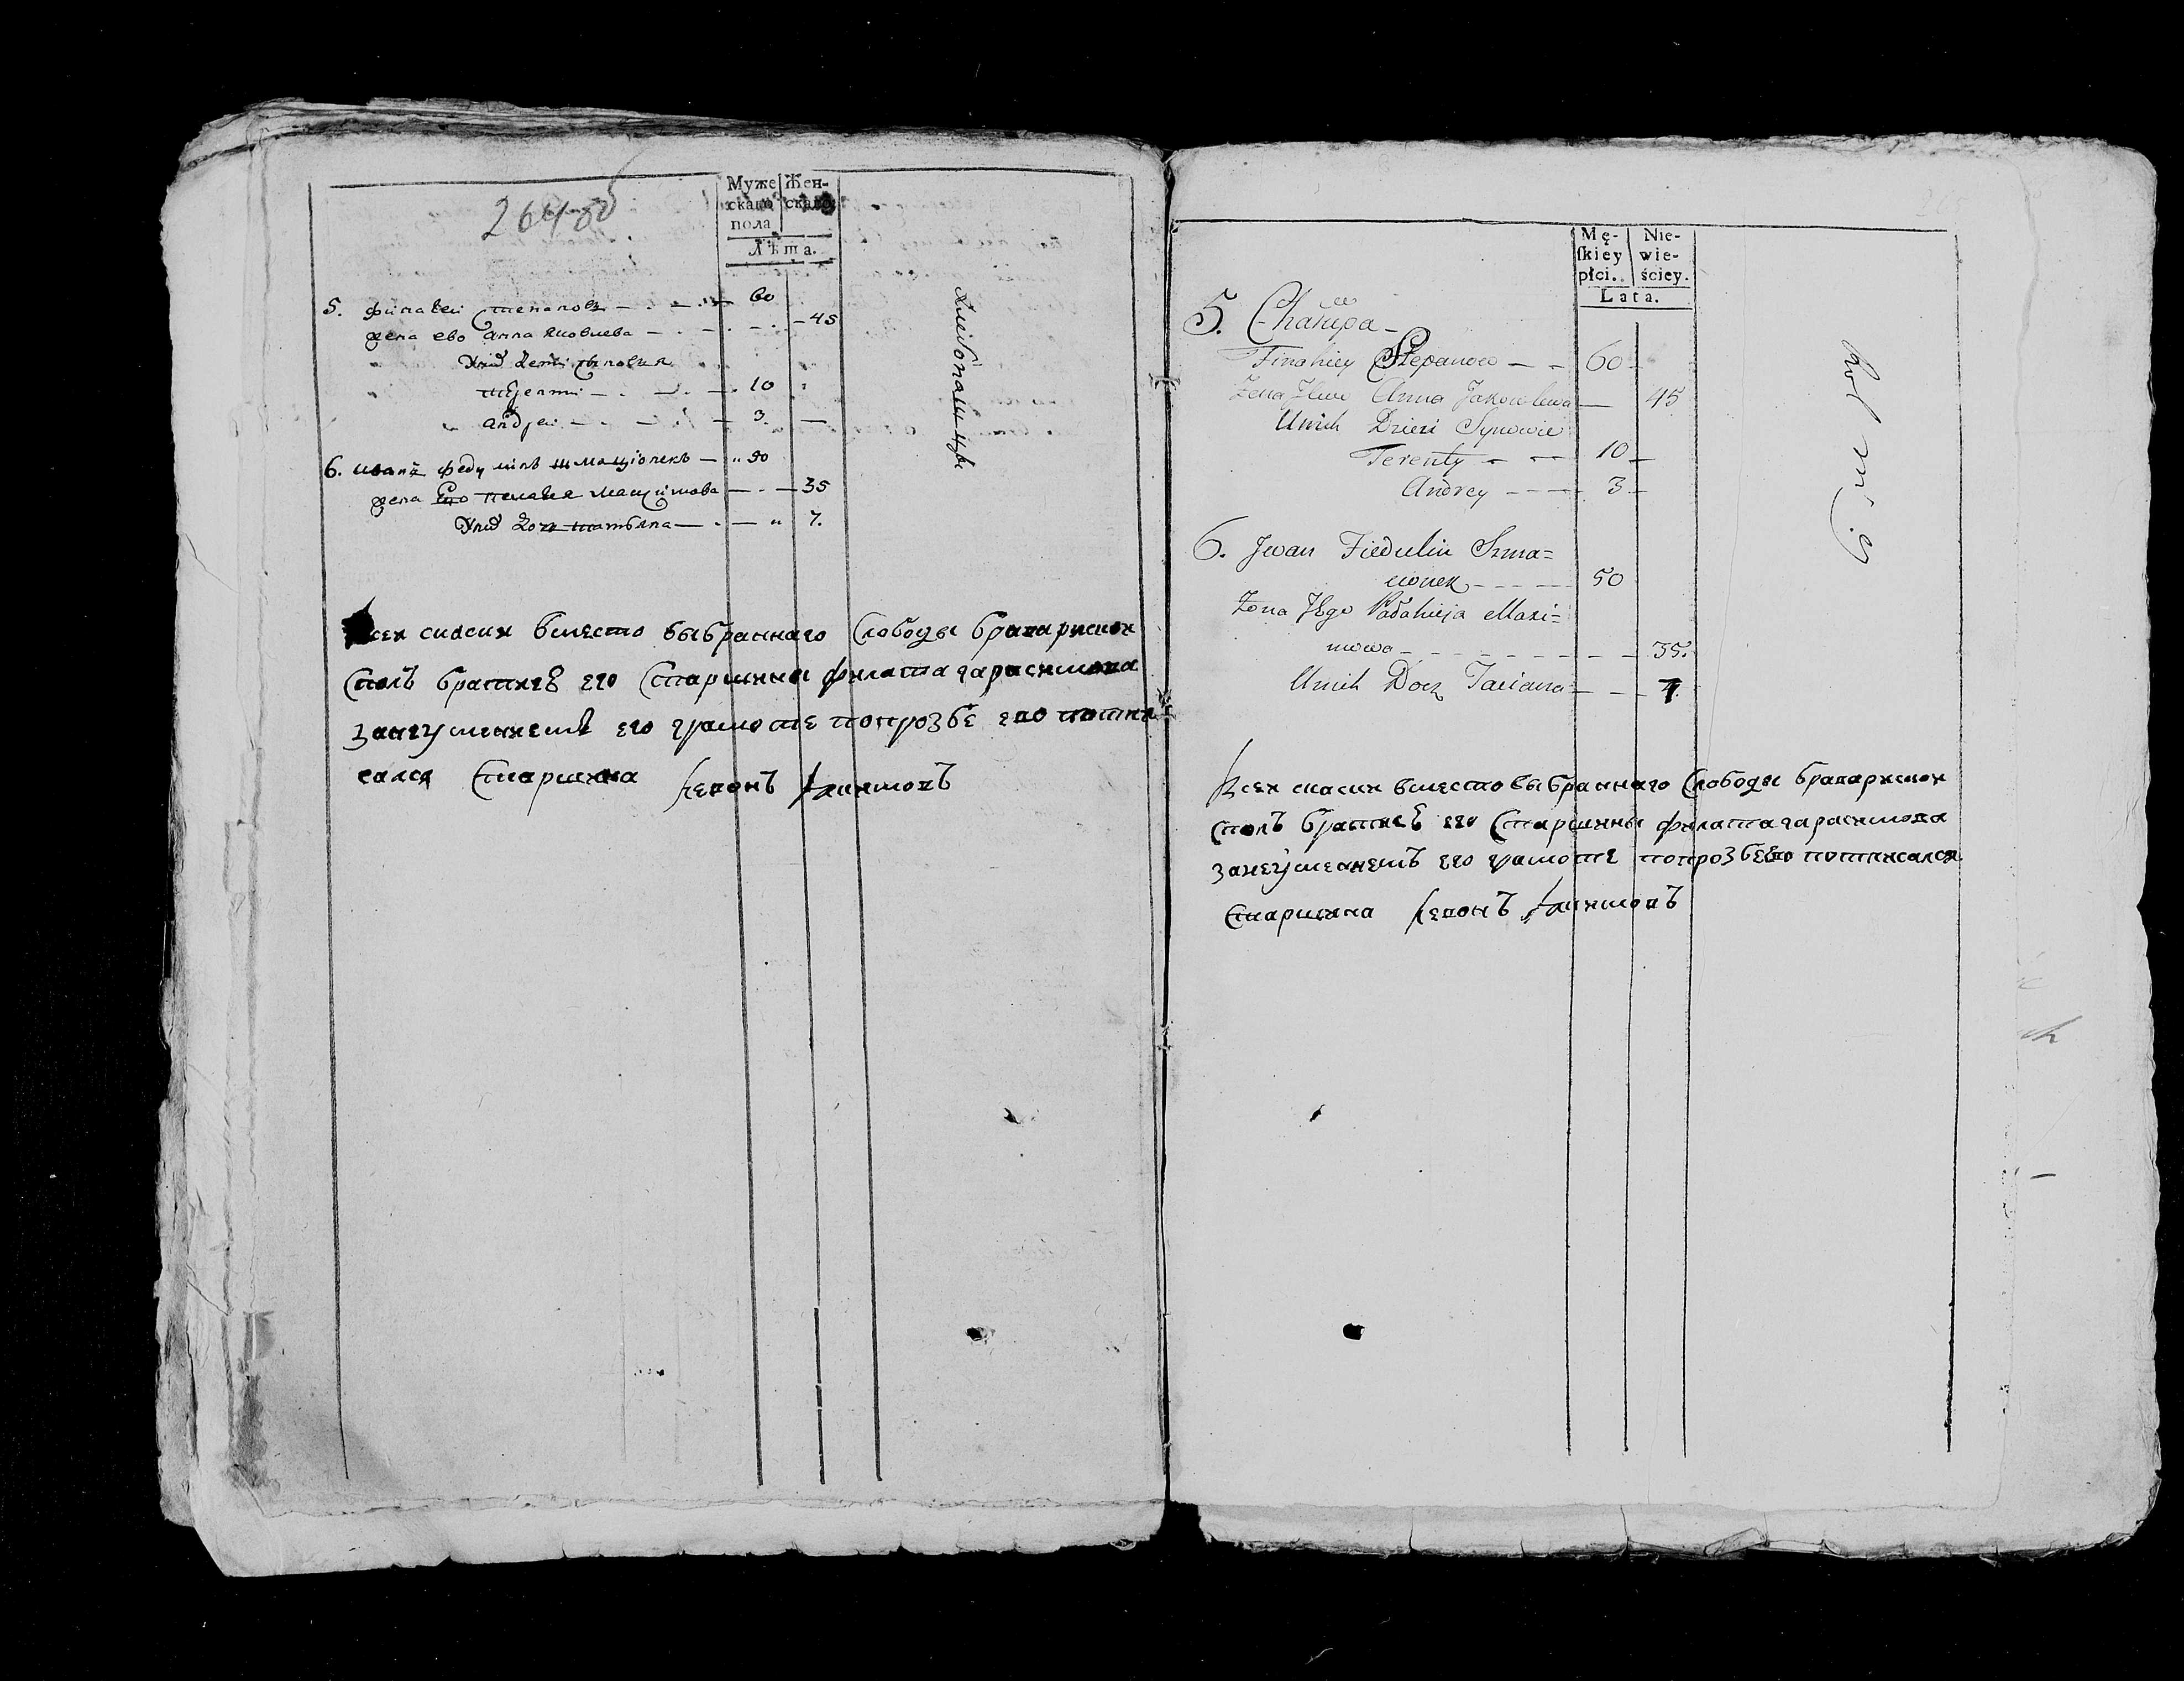 264 об
Муже
скаго
пола
Жен-
скаго
Лѣта.
5. финаѳеи степановъ — 60
жена ево анна яковлева — 45
У нихъ дети сыновия
терентеи — 10
андреи — 3.
6. иванъ федулинъ шмаціонекъ — 50
жена Его мащимова — 35
У нихъ доч татьяна — 7.
Хлебопашцы
сеи скаски вместо выбраннаго Слободы
его Старшины филата гарасимова
занеумениемъ его грамоте попрозбе его потпи
сался Старшина Левонъ
Mę-
ſkiey
płci.
Nie-
wie-
ściey.
Lata.
5. Chałupa
Finahiey Stepanow — 60
Żena Jewo Anna Jakowlewa — 45
Unich Dzieci Synowie
Terenty — 10
Andrey — 3
6. Jwan Fiedulin Szma=
cionek — 50
Żona Jego Maxi=
mowa — 35.
Unich Docz Taciana — 7
Всеи скаски вместо выбраннаго Слободы
его Старшины филата гарасимова
занеумениемъ его грамоте попрозбе ево потписался
Старшина Левонъ